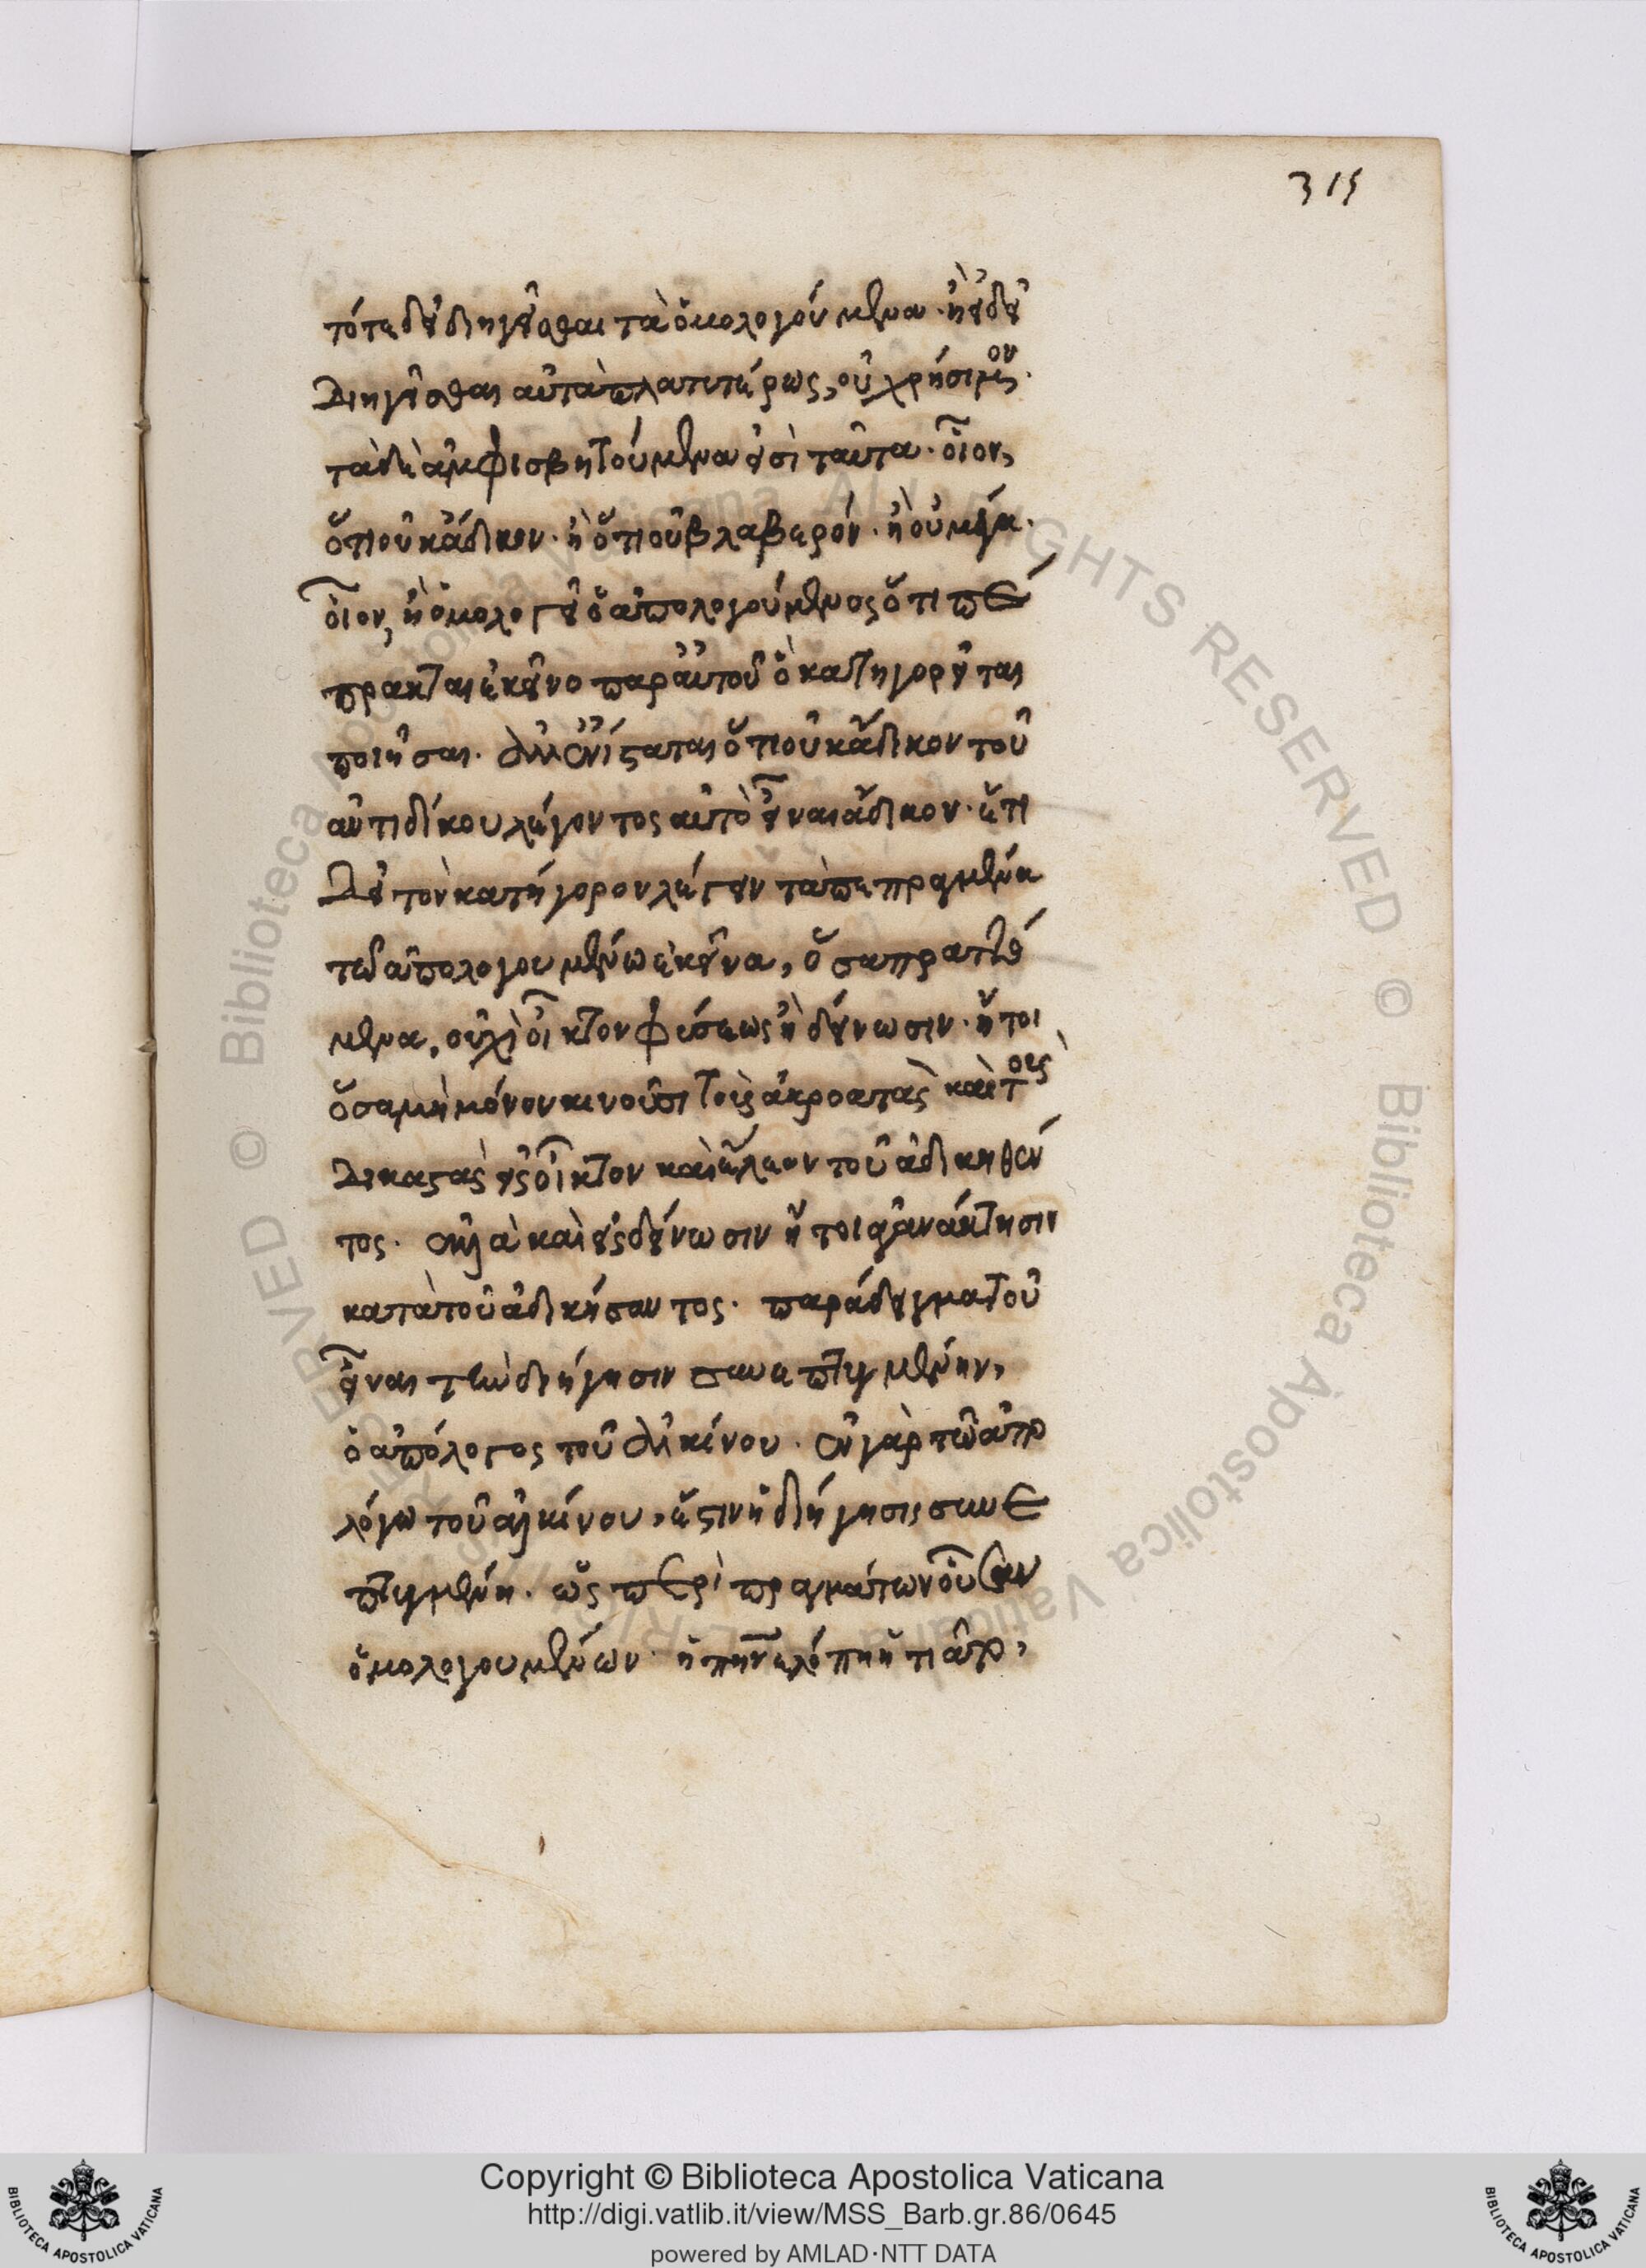 315
τότε δεῖ διηγεῖσθαι τὰ ὁμολογούμενα· ἢ εἰ δεῖ
διηγεῖσθαι αὐτὰ πλατυτέρως, οὐ χρήσιμον.
τὰ δὲ ἀμφισβητούμενα εἰσὶ ταῦτα· οἷον,
ὅτι οὐκ ἄδικον· ἢ ὅτι οὐ βλαβερόν· ἢ οὐ μέγα·
οἷον, ἢ ὁμολογεῖ ὁ ἀπολογούμενος ὅτι πέ
πρακται ἐκεῖνο παρ' αὐτοῦ ὃ κατηγορεῖται
ποιῆσαι. ἀλλ' ἐνίσταται ὅτι οὐκ ἄδικον τοῦ
ἀντιδίκου λέγοντος αὐτὸ εἶναι ἄδικον· ἔτι
δεῖ τὸν κατήγορον λέγειν τὰ πεπραγμένα
τῷ ἀπολογουμένω ἐκεῖνα, ὅσα πραττό
μενα, οὐχὶ οἶκτον φύσεως ἢ δείνωσιν· ἤτοι
ὅσα μὴ μόνον κινοῦσι τοὺς ἀκροατὰς καὶ τοὺς
δικαστὰς εἰς οἶκτον καὶ ἔλεον τοῦ ἀδικηθέν
τος. ἀλλὰ καὶ εἰς δείνωσιν ἤτοι ἀγανάκτησιν
κατὰ τοῦ ἀδικήσαντος. παράδειγμα τοῦ
εἶναι τὴν διήγησιν συνεπτυγμένην,
ὁ ἀπόλογος τοῦ ἀλκίνου. ἐν γὰρ τῷ ἀπο
λόγω τοῦ ἀλκίνου, ἔστιν ἡ διήγησις συνε
πτυγμένη. ὡς περὶ πραγμάτων οὖσαν
ὁμολογουμένων· ἡ πηνελόπη ἤτι ἀπο,
Copyright © Biblioteca Apostolica Vaticana
http://digi.vatlib.it/view/MSS_Barb.gr.86/0645
powered by AMLAD·NTT DATA